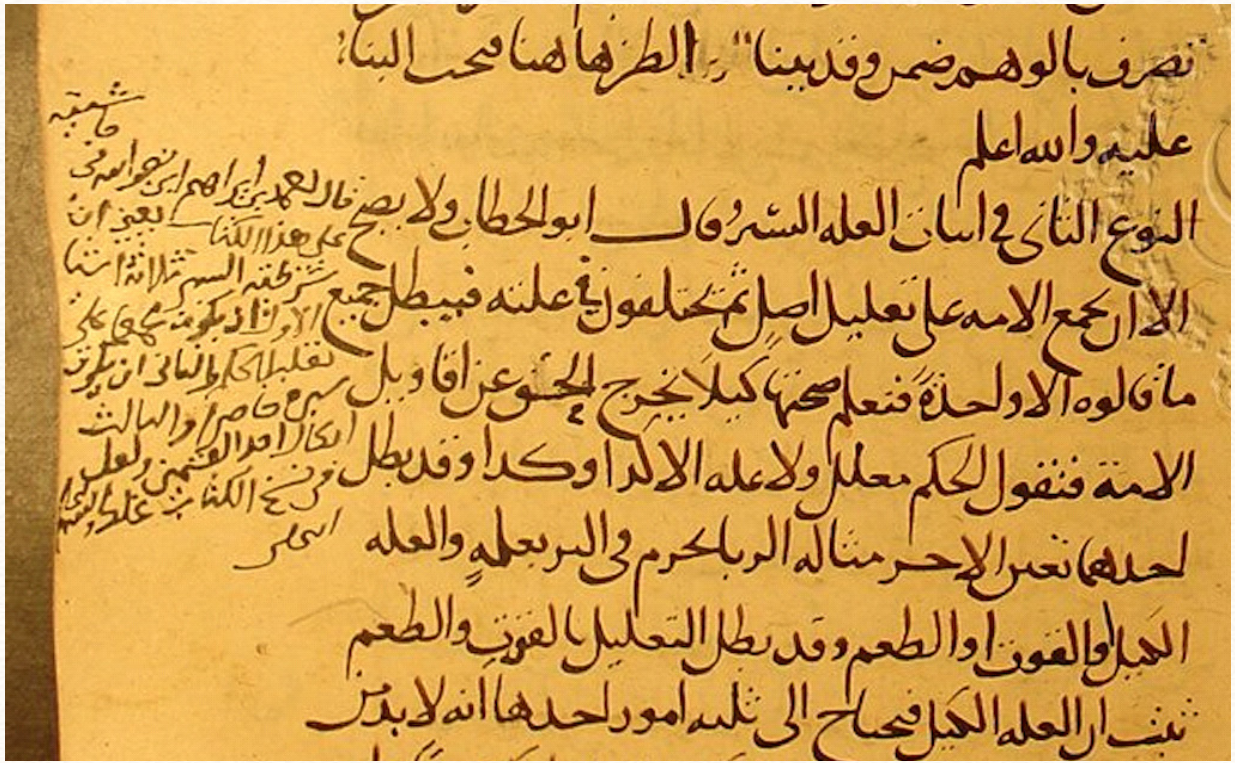 تصرف بالوهم ضمن وقد بينا الطرد هاهنا فيجب البنا
عليه والله اعلم
النوع الثاني في اثبات العله السبر قال ابو الخطاب ولا يصح
الا ان تجمع الامه على تعليل اصل ثم يختلفون في علته فيبطل جميع
ما قالوه الا واحدة فتعلم صحتها كيلا يخرج الحق عن اقاويل
الامة فنقول الحكم معلل ولا عله الا كذا او كذا وقد بطل
احدهما تعين الاخر مثاله الربا يحرم في البر بعلة والعله
الكيل او القوت او الطعم وقد بطل التعليل بالقوت والطعم
ثبت ان العله الكيل فيحتاج الى ثلثه امور احدها انه لا بد من
حاشيه
قال محمد بن ابراهيم ابن نصر الله في
على هذا الكتاب يعني ان
شرطه السبر ثلاثة اشيا
الاول ان يكون مجمعا على
تعليله والثاني ان يكون
سبره حاصرا والثالث
ابطال احد القسمين ولعل
في نسخ الكتاب غلط
انتهى